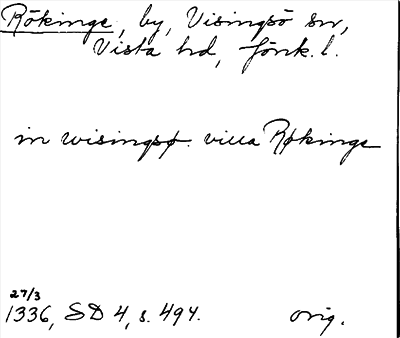 Rökinge, by, Visingsö sn,
Vista hd, Jönk. l.
in wisingsø villa Røkinge
27/3
1336, SD 4, s. 494. orig.